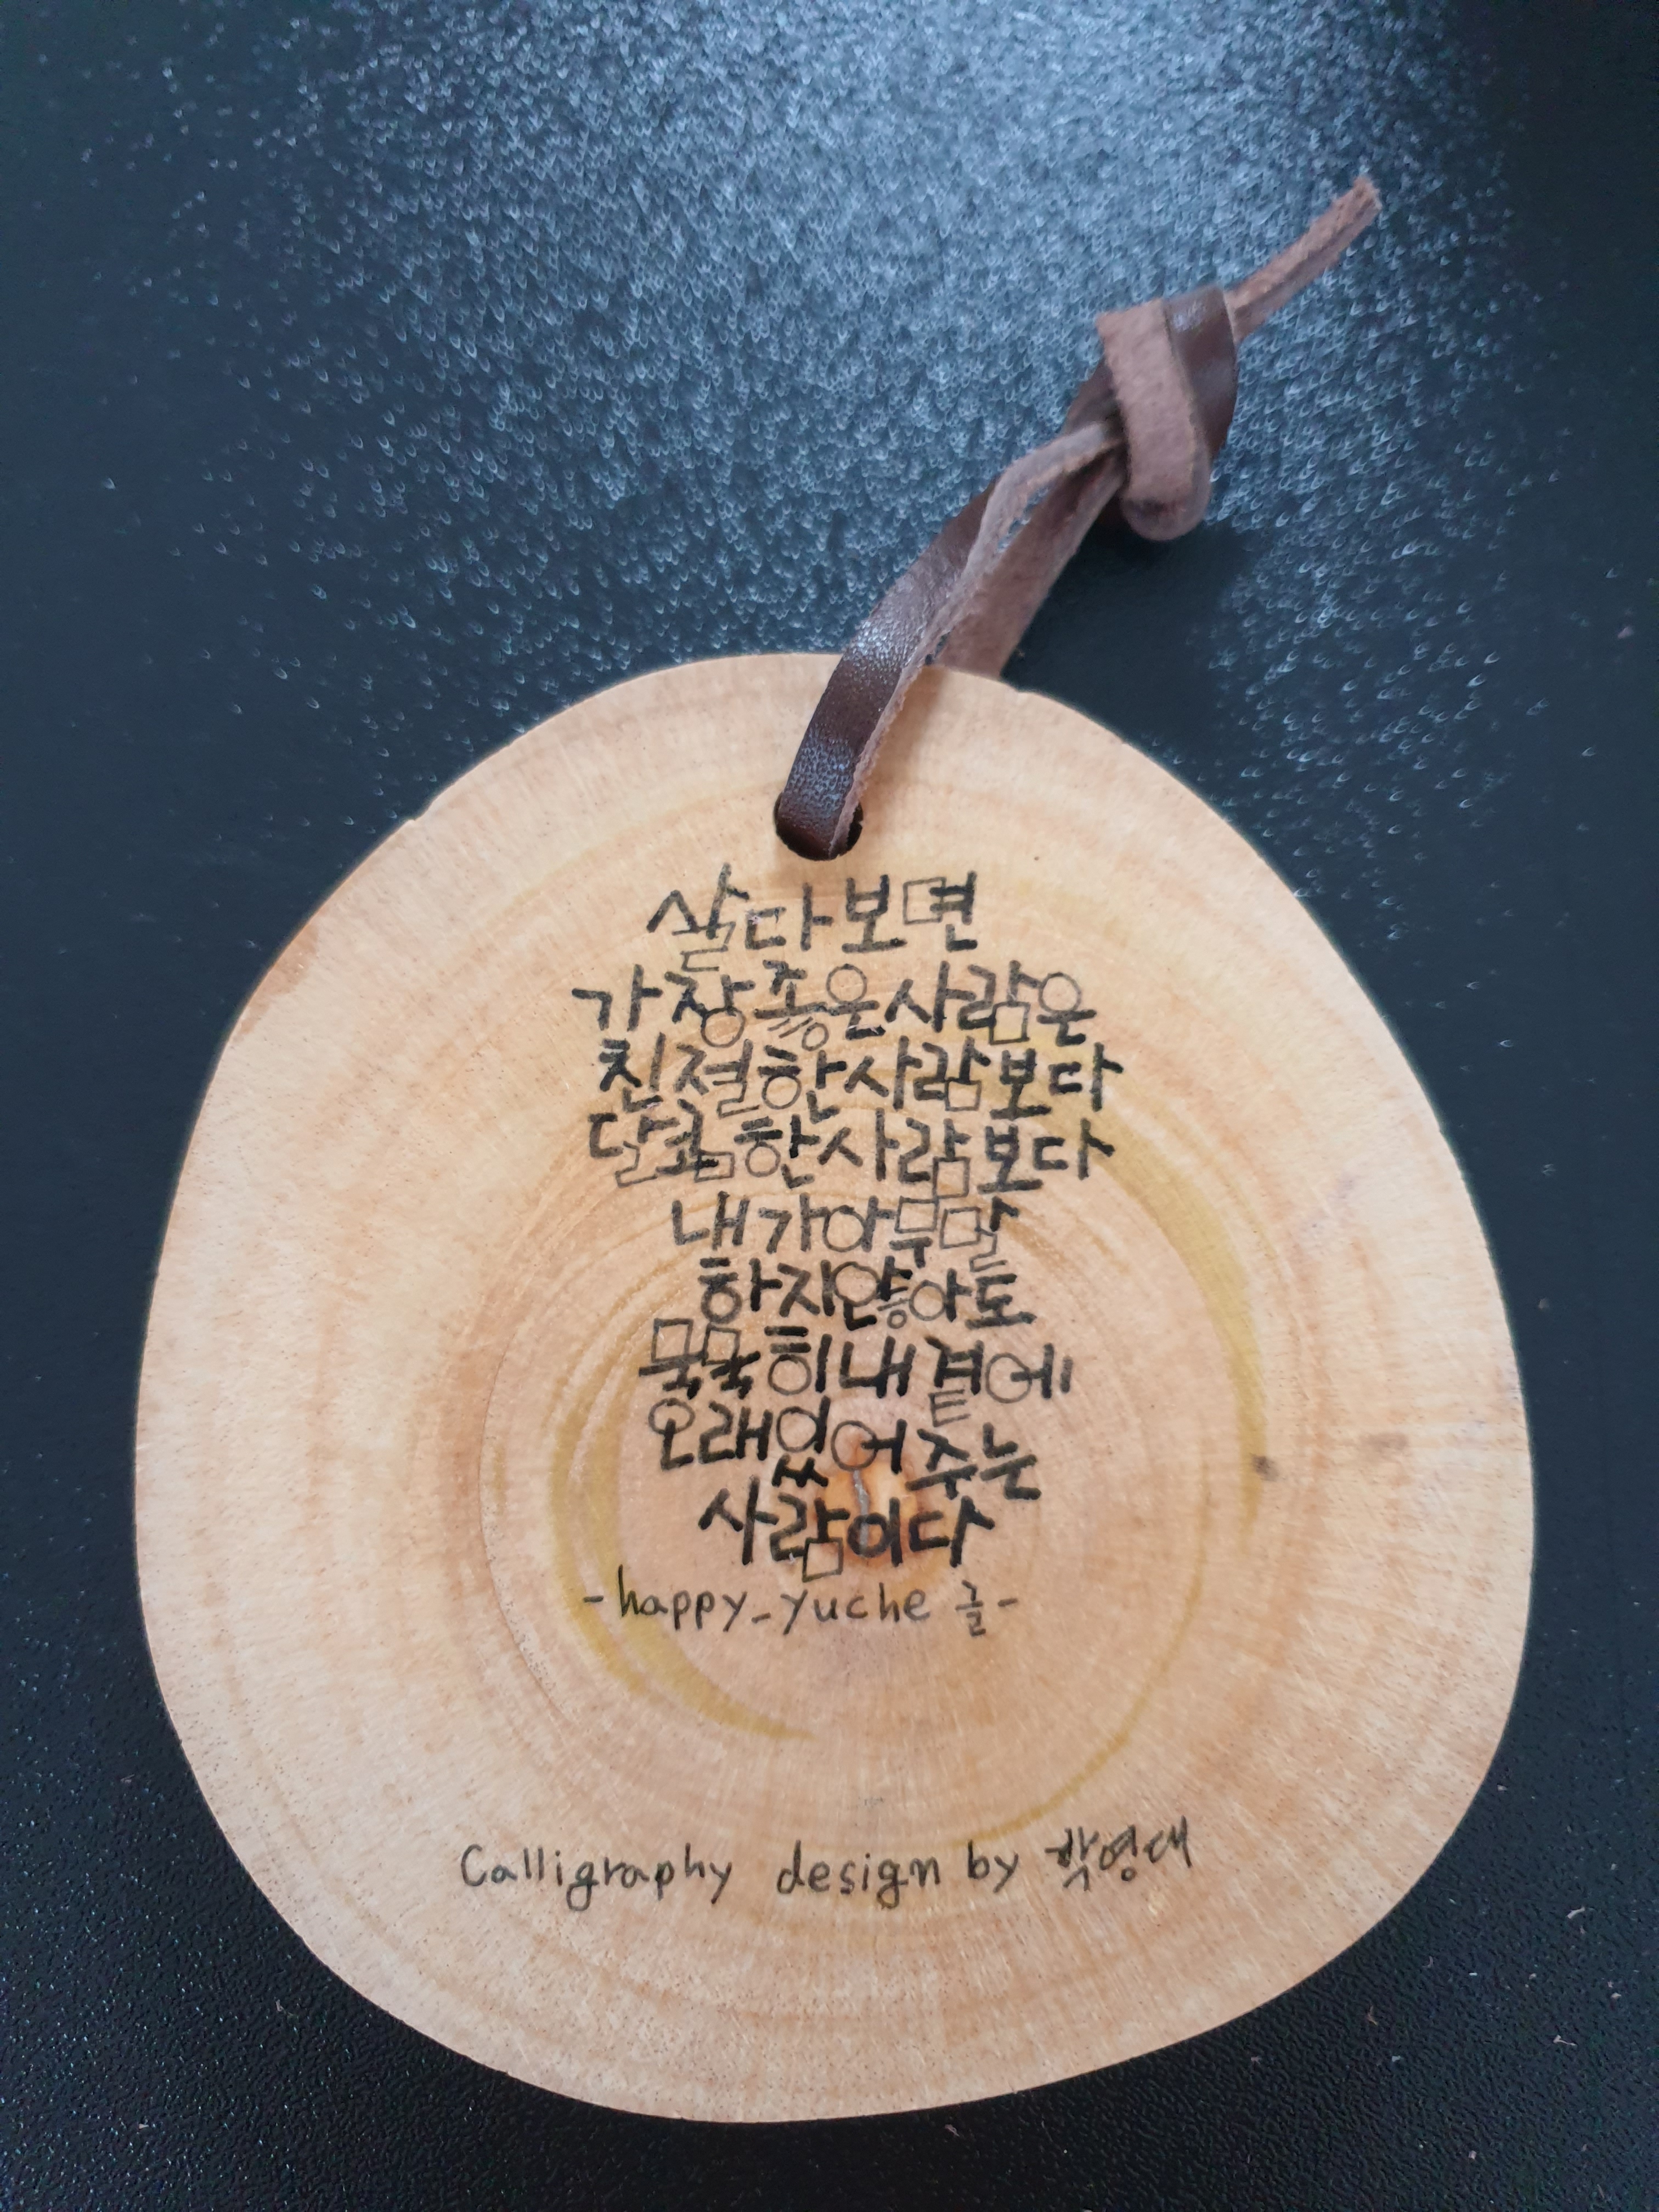 살다보면
가장좋은사람은
친절한사람보다
달콤한사람보다
내가아무말
하지않아도
묵묵히내곁에
오래있어주는
사람이다
-happy_yuche 글-
Calligraphy design by 박영대